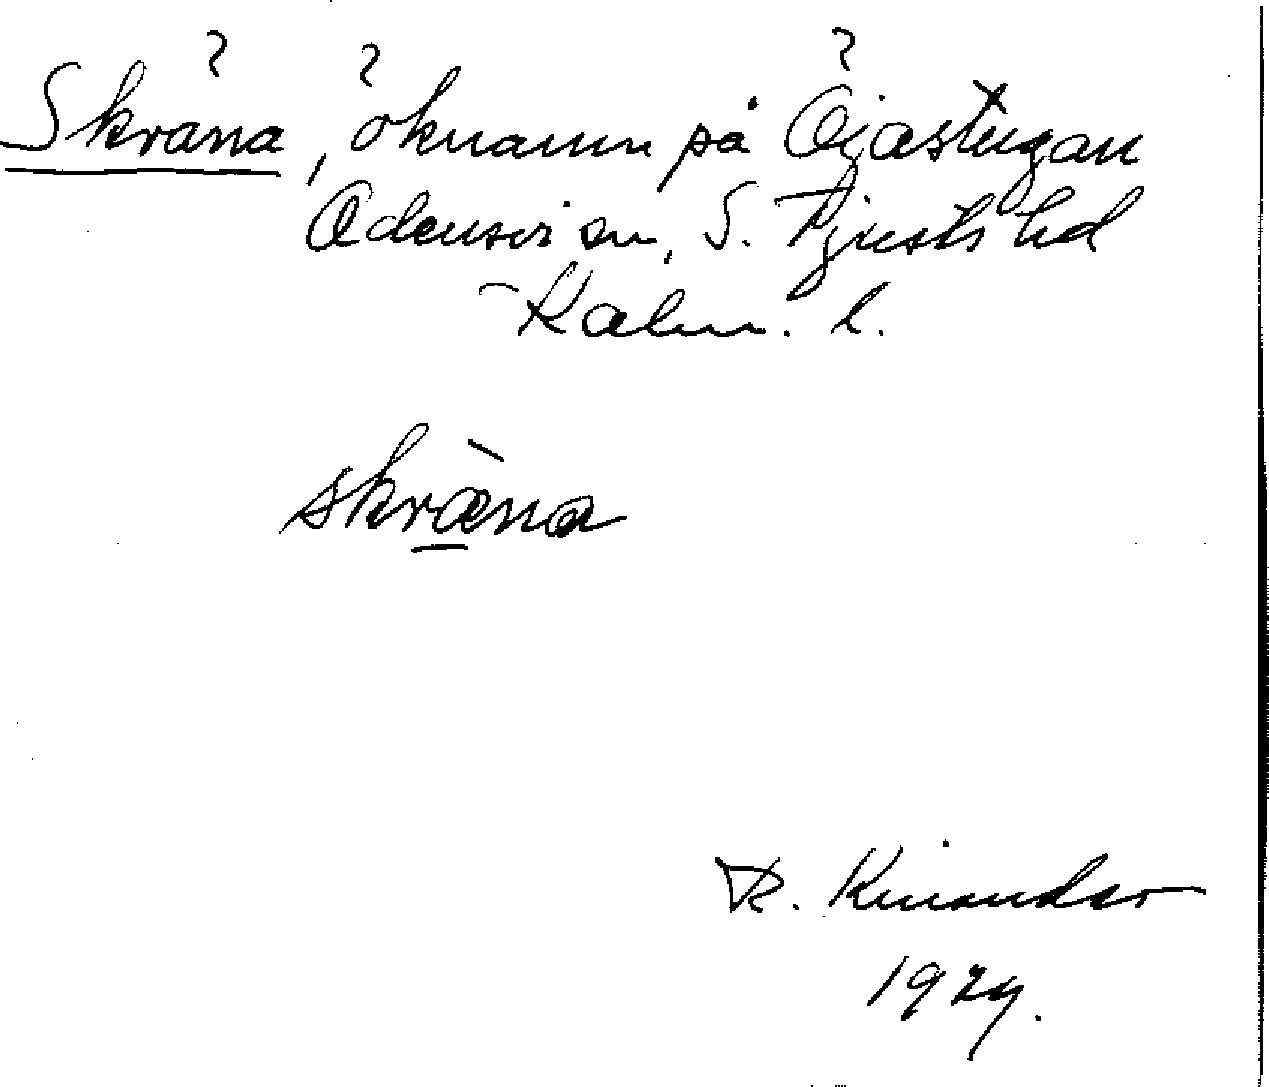 Skräna, öknamn på Öjastugan
Odensvi sn, S. Tjusts hd
Kalm. l.
skräna
R. Kinander
1929.